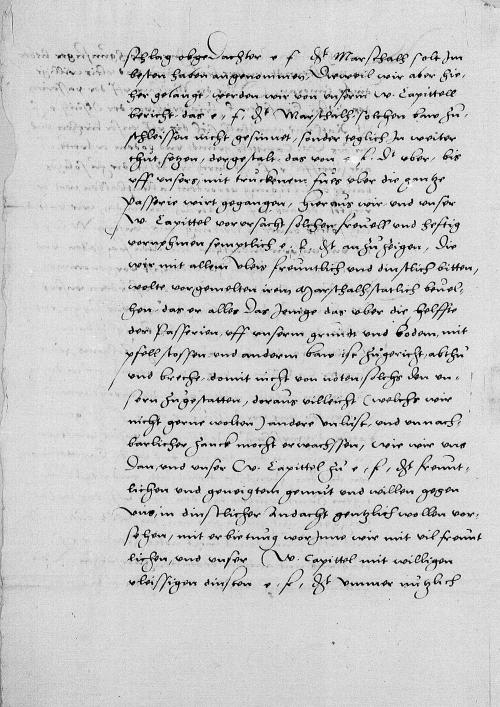 schlag obgedachter e f gt Marschall solt Im
besten haben angenommen, Dieweil wir aber hie-
her gelangt, werden wir von unserm w. Capittell
bericht das e, f, gt Marschall solchen baw zu-
schleissen nicht gesinnet, sonder teglich In weiter
thut setzen, dergestalt, das von e. f. gt uber, bis
uff unsers, mit truckenem fues uber die gantze
Passerie wirt gegangen, hieraus wir und unser
w. Capittel verursacht solchen frevell und hefftig
vornhemen semptlich e. f. gt anzuzeigen, Die
wir mit allem vleis freuntlich und dinstlich bitten,
wolte vorgemelten irem Marschalh statlich bevel-
hen, das er alles das Jenige das uber die helffte
der Passerien, uff unserm grundt und boden, mit
pfell stossen und anderm baw ist zugericht, abthu
und breche, domit nicht von nöten solchs den un-
sern zugestatten, doraus villeicht (welchs wir
nicht gerne wolten) andere unlust, und unnach-
barlicher zanck mocht erwachssen, wie wir uns
dan, und unser w. Capittel zu e, f, gt freunt-
lichen und geneigtem gemut und willen gegen
uns, in dinstlicher Andacht gentzlich wollen vor-
sehen, mit erbietung worinne wir mit vil freunt
lichen, und unser w. Capittel mit willigen
vleissigen dinsten e, f, gt ummer nutzlich